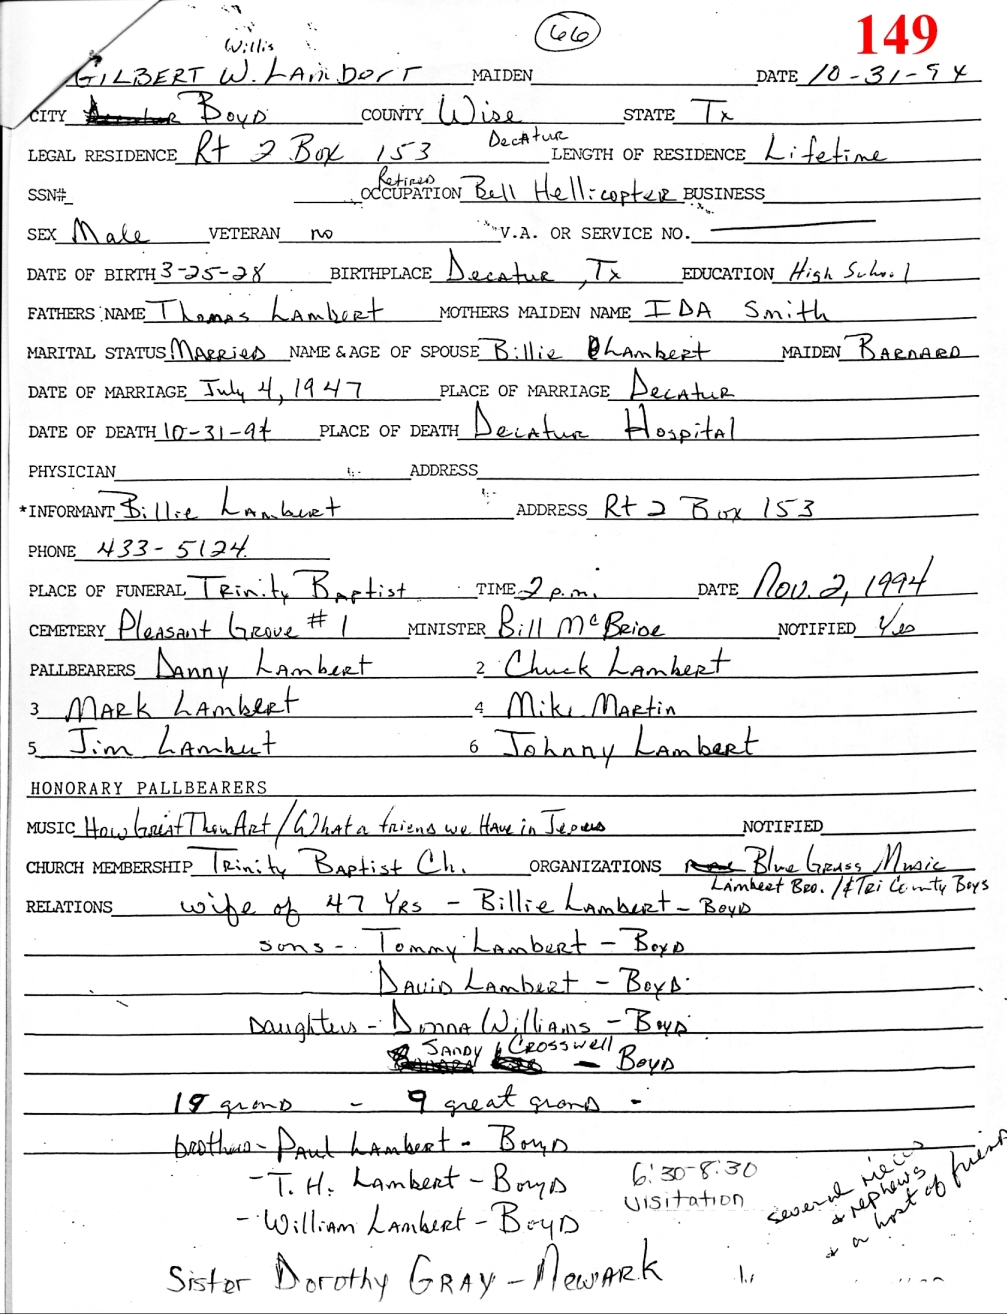 Willis 66 149
GILBERT W. LAMBERT MAIDEN DATE 10-31-94
CITY BOYD COUNTY Wise STATE Tx
LEGAL RESIDENCE Rt 2 Box 153 Decatur LENGTH OF RESIDENCE Lifetime
SSN# Retired OCCUPATION Bell Hellicopter BUSINESS
SEX Male VETERAN no V.A. OR SERVICE NO.
DATE OF BIRTH 3-25-28 BIRTHPLACE Decatur, Tx EDUCATION High School
FATHERS NAME Thomas Lambert MOTHERS MAIDEN NAME IDA Smith
MARITAL STATUS Married NAME & AGE OF SPOUSE Billie Lambert MAIDEN BARNARD
DATE OF MARRIAGE July 4, 1947 PLACE OF MARRIAGE Decatur
DATE OF DEATH 10-31-94 PLACE OF DEATH Decatur Hospital
PHYSICIAN ADDRESS
*INFORMANT Billie Lambert ADDRESS Rt 2 Box 153
PHONE 433-5124
PLACE OF FUNERAL Trinity Baptist TIME 2 p.m. DATE Nov. 2, 1994
CEMETERY Pleasant Grove #1 MINISTER Bill McBride NOTIFIED Yes
PALLBEARERS Danny Lambert 2 Chuck Lambert
3 MARK LAMBERT 4 Mike Martin
5 Jim Lambert 6 Johnny Lambert
HONORARY PALLBEARERS
MUSIC How Great Thou Art / What a friend we Have in Jesus NOTIFIED
CHURCH MEMBERSHIP Trinity Baptist Ch. ORGANIZATIONS Blue Grass Music
Lambert Bro. / & Tri County Boys
RELATIONS wife of 47 yrs - Billie Lambert - Boyd
sons - Tommy Lambert - Boyd
David Lambert - Boyd
Daughters - Donna Williams - Boyd
Sandy Crosswell - Boyd
19 grand - 9 great grand -
brothers - Paul Lambert - Boyd
- T. H. Lambert - Boyd
- William Lambert - Boyd
6:30-8:30
visitation
several nieces
& nephews
& a host of friends
Sister Dorothy GRAY - NEWARK